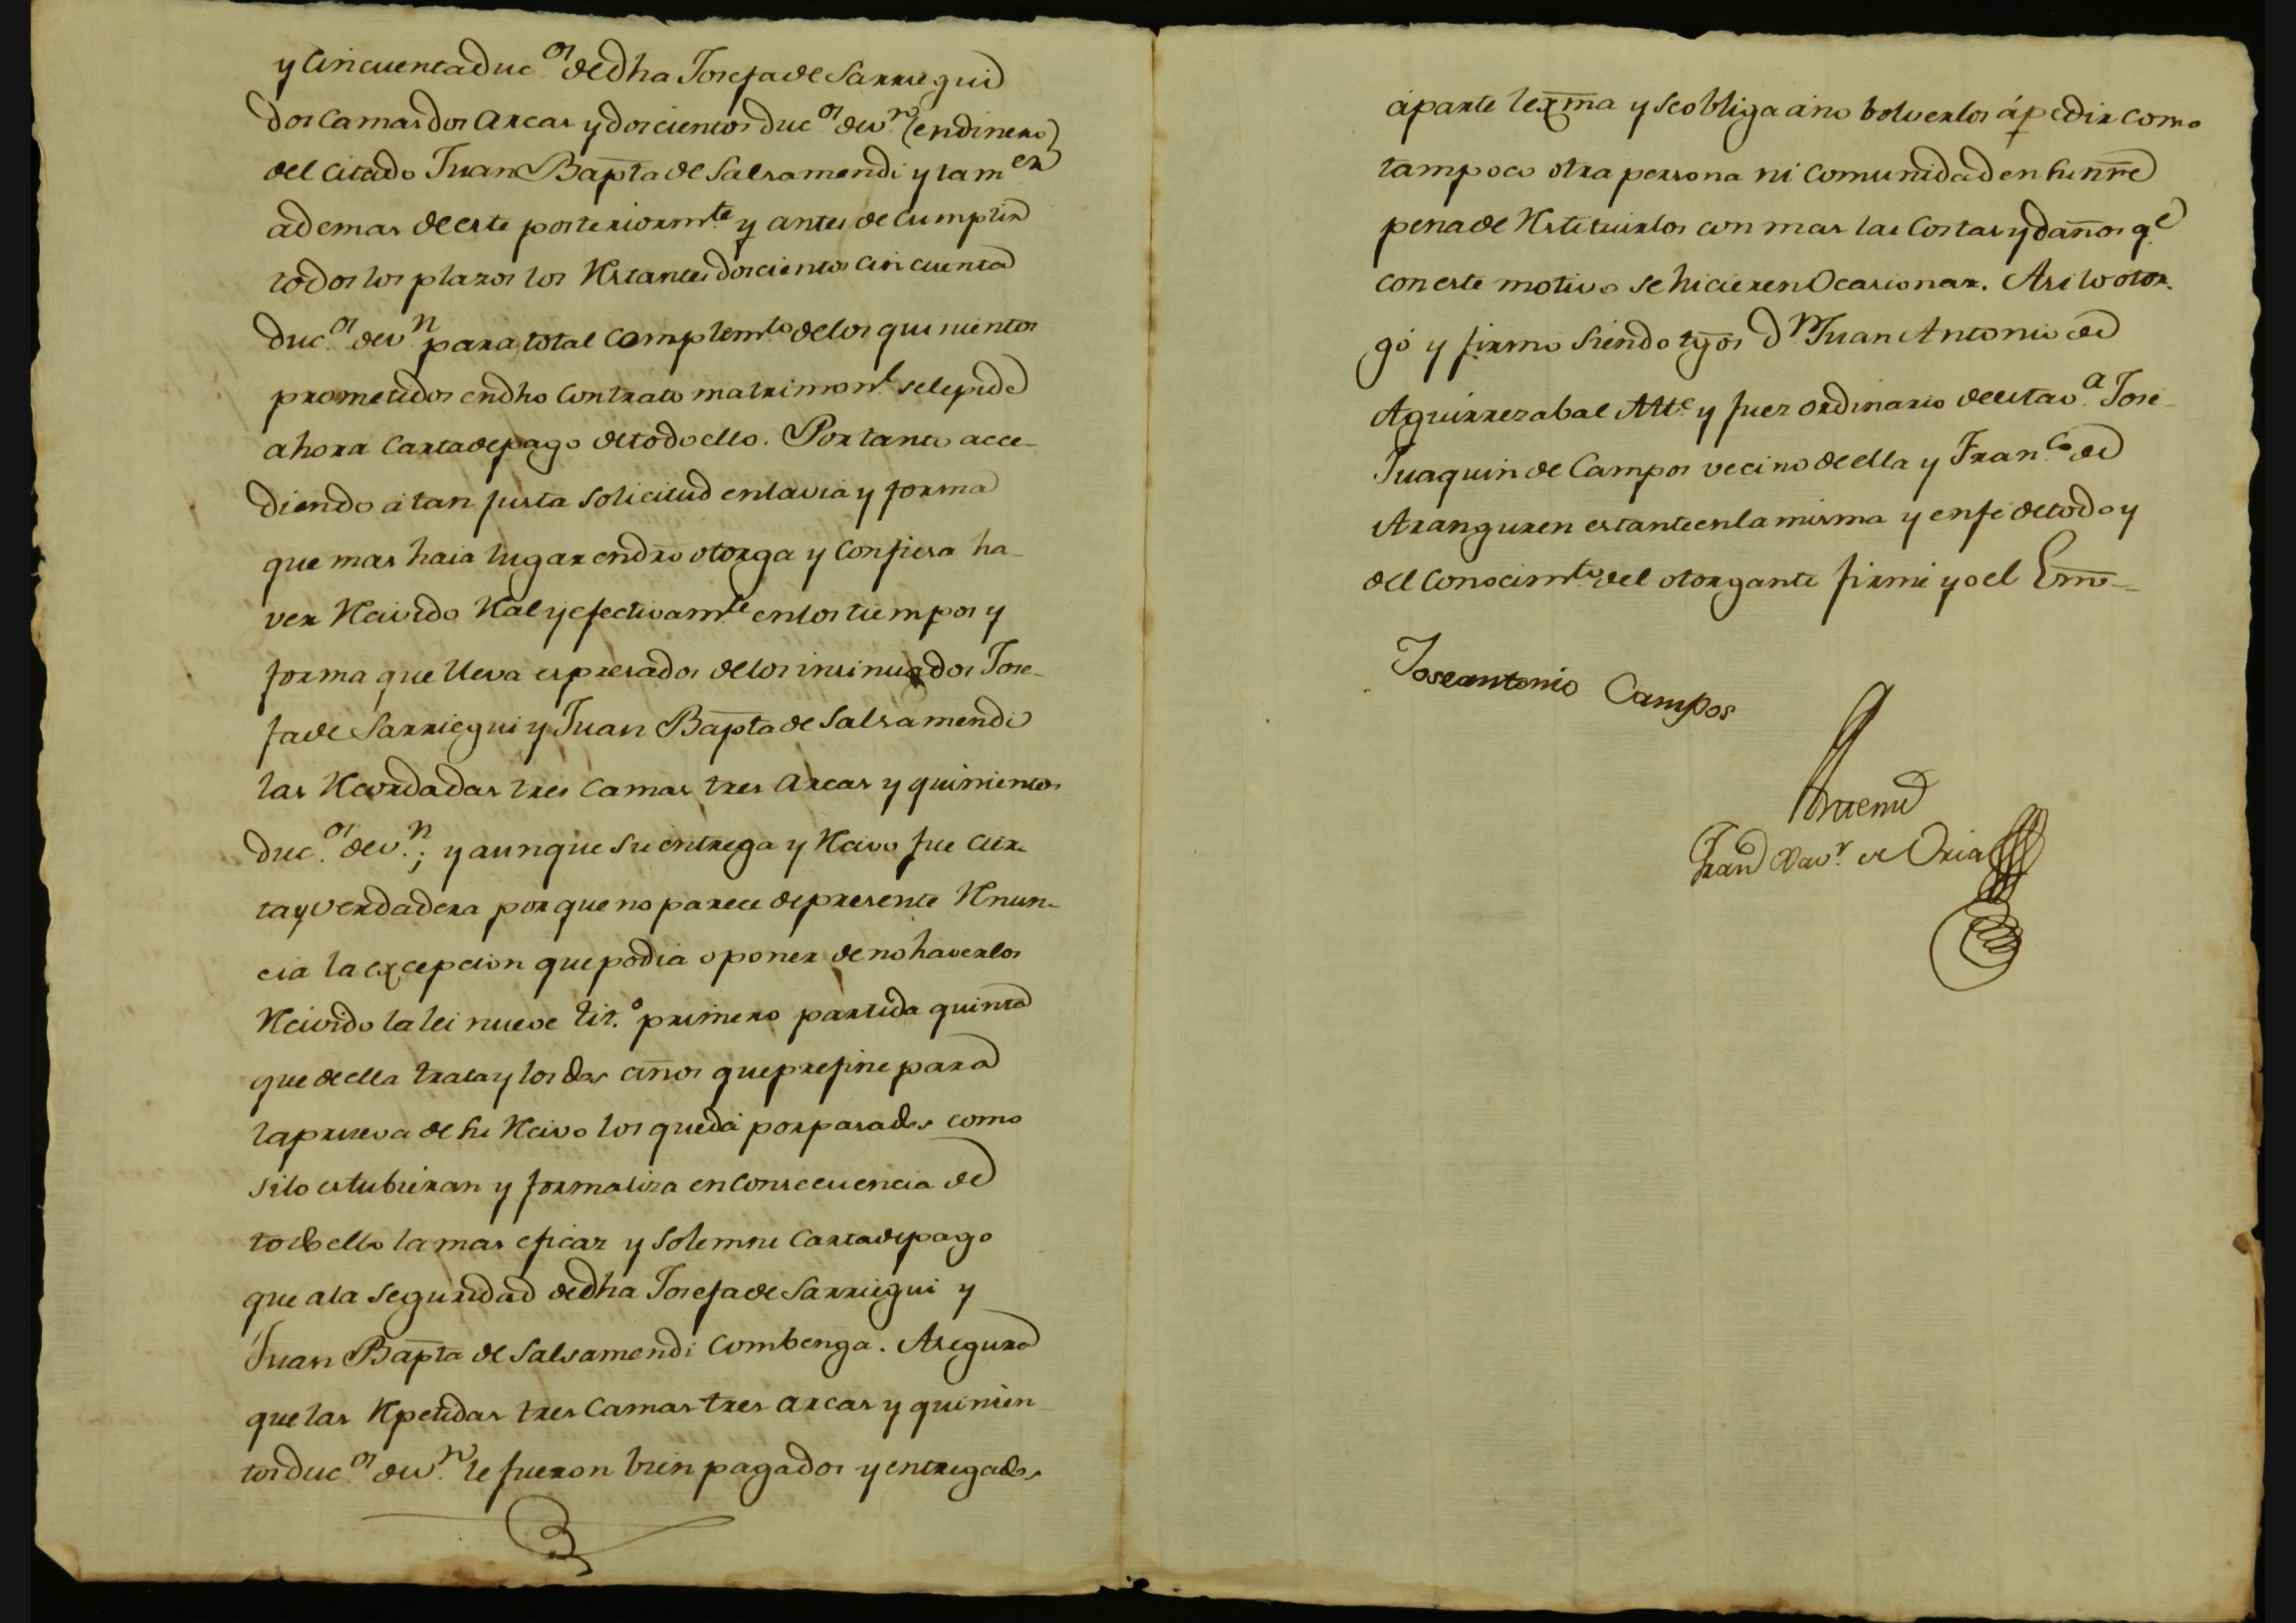 y Cincuenta duc.os de dha Josefa de Sarriegui
dos camas dos arcas y doscientos duc.os de v.n (en dinero)
del citado Juan Bapta de Salsamendi y tam.en
ademas de este posteriorm.te y antes de cumplir
todos los plazos los Restantes doscientos cincuenta
duc.os de v.n para total complem.to de los quinientos
prometidos en dho Contrato matrimon.l se le pide
ahora Carta de pago de todo ello. Por tanto acce-
diendo á tan justa solicitud en la via y forma
que mas haia lugar en dro otorga y Confiesa ha-
ver Recivido Real y efectivam.te en los tiempos y
forma que lleva espresados de los insinuados Jose-
fa de Sarriegui y Juan Bapta de Salsamendi
las Recordadas tres camas tres arcas y quinientos
duc.os de v.n; y aunque su entrega y Recivo fue cier-
ta y verdadera por que no parece de presente Renun-
cia la excepcion que podia oponer de no haverlos
Recivido la lei nueve tit.o primero partida quinta
que de ella trata y los dos años que prefine para
la prueva de su Recivo los queda por pasados como
si lo estubieran y formaliza en Consecuencia de
todo ello la mas eficaz y solemne Carta de pago
que a la seguridad de dha Josefa de Sarriegui y
Juan Bapta de Salsamendi combenga. Asegura
que las Repetidas tres Camas tres arcas y quinien-
tos duc.os de v.n le fueron bien pagados y entregados
á parte lexma y se obliga á no bolverlos á pedir como
tampoco otra persona ni comunidad en su nre
pena de Restituirlos con mas las Costas y daños q.e
con este motivo se hicieren Ocasionar. Asi lo otor-
gó y firmó siendo tgos D.n Juan Antonio de
Aguirrezabal Alte. y Juez ordinario de esta v.a Jose
Juaquin de Campos vecino de ella y Fran.co de
Aranguren estante en la misma y en fe de todo y
del Conocim.to del otorgante firmé yo el Esno
Joseantonio Campos
Antemi
Fran Xav.r de Oria